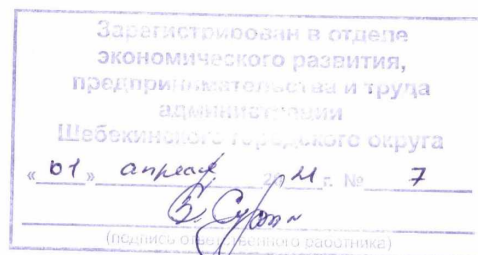 Зарегистрирован в отделе
экономического развития,
предпринимательства и труда
администрации
Шебекинского городского округа
«01» апреля 2021 г. № 7
(подпись ответственного работника)